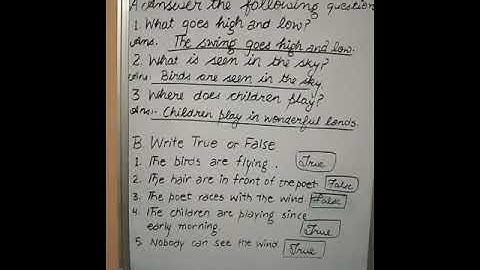 A. Answer the following question
1. What goes high and low?
Ans. The swing goes high and low.
2. What is seen in the sky?
Ans. Birds are seen in the sky.
3 Where does children play?
Ans:- Children play in wonderful lands.
B. Write True or False.
1. The birds are flying. True
2. The hair are in front of the poet False
3. The poet races with the wind. False
4. The children are playing since
early morning. True
5. Nobody can see the wind. True